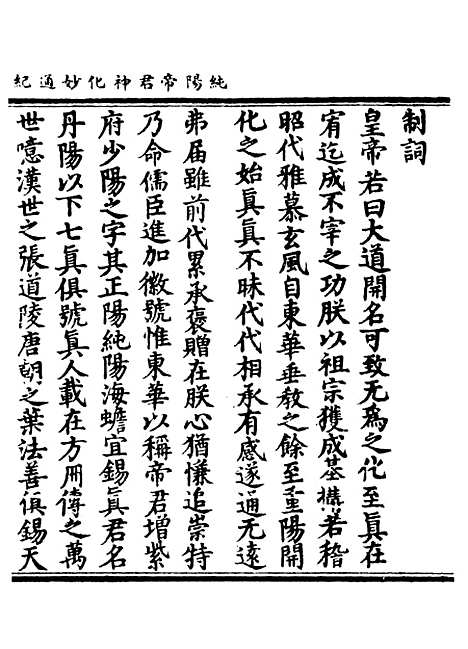 純陽帝君神化妙通紀
制詞
皇帝若曰大道開名可致无爲之化至真在
宥迄成不宰之功朕以祖宗獲成基構若稽
昭代雅慕玄風自東華垂教之餘至重陽開
化之始真真不昧代代相承有感遂通无遠
弗届雖前代累承褒贈在朕心猶慊追崇特
乃命儒臣進加徽號惟東華以稱帝君增紫
府少陽之字其正陽純陽海蟾宜錫真君名
丹陽以下七真俱號真人載在方冊傳之萬
世噫漢世之張道陵唐朝之葉法善俱錫天